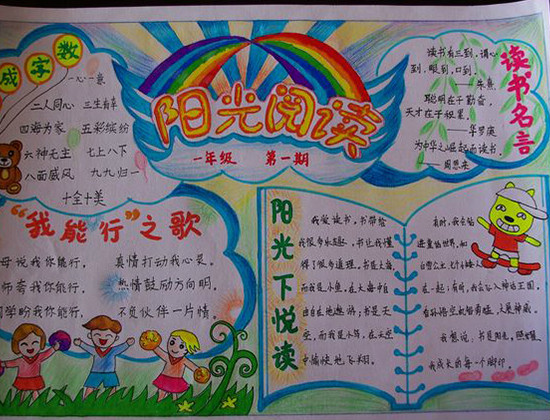 成字数
一心一意
二人同心 三生有幸
四海为家 五彩缤纷
六神无主 七上八下
八面威风 九九归一
十全十美
阳光阅读
一年级 第一期
读书名言
读书有三到，谓心
到，眼到，口到。
——朱熹
聪明在于勤奋，
天才在于积累。
——华罗庚
为中华之崛起而读书。
——周恩来
“我能行”之歌
母说我你能行， 真情打动我心灵。
师斋我你能行， 热情鼓励方向明。
同学盼我你能行， 不负伙伴一片情。
阳光下悦读
我爱读书，书带给
我很多乐趣，书让我懂
得了很多道理。书是大海，
而我是小鱼，在大海中自
由自在地遨游；书是天
空，而我是小鸟，在天空
中愉快地飞翔。
有时，我会钻
进童话世界，和
白雪公主、七个小矮人
在一起；有时，我会进入神话王国，
和孙悟空
我想说：书是阳光，照耀
我成长的每一个脚印。